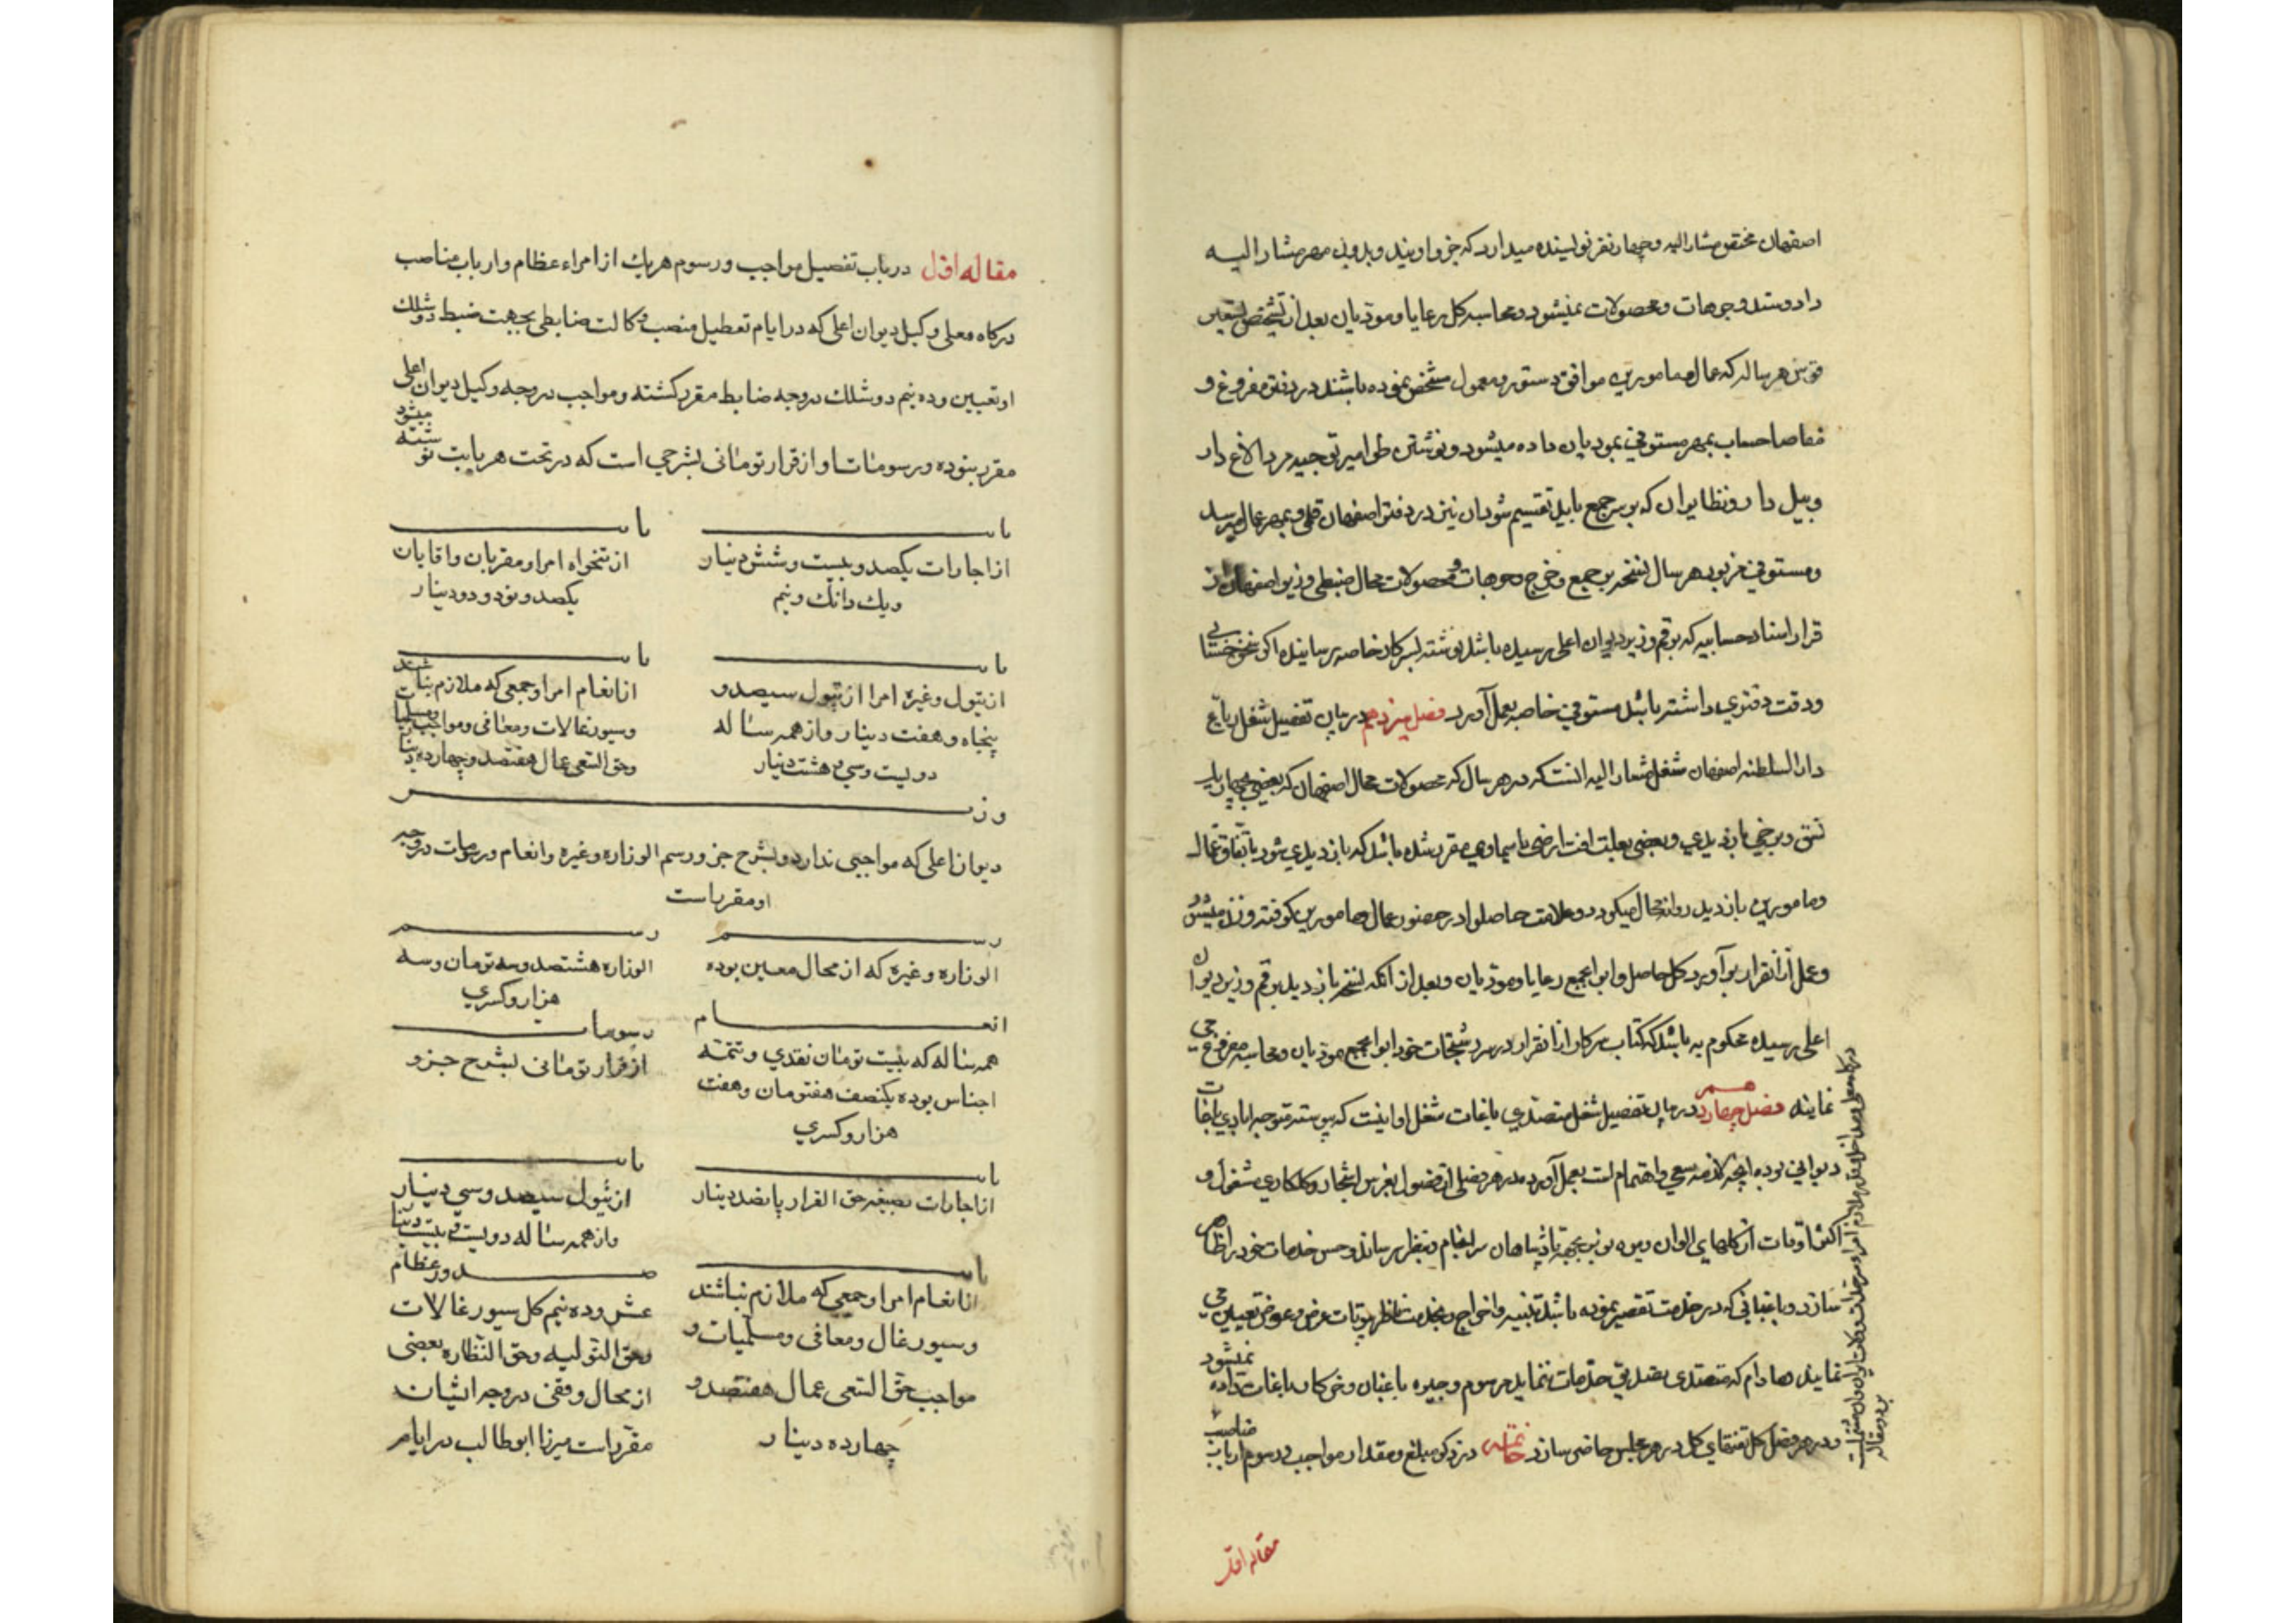 اصفهان مختص مشار الیه و چهار نفر نویسنده میدارد که جزو اویند و بدون مهر مشار الیه
داد و ستد وجوهات و محصولات نمیشود و محاسبه کل رعایا و مودیان بعد از تشخیص تسعیر
هر ساله که عمال و مامورین موافق دستور و معمول مشخص نموده باشند در دفتر مفروغ و
مفاصا حساب بمهر مستوفی بمودیان داده میشود و نوشتن طوامیر توجیه مرد الاغ دار
و بیل دار و نظایر ان که بر سر جمع باید تقسیم شود ان نیز در دفتر اصفهان قلمی و بمهر عمال میرسد
و مستوفی مزبور هر سال نسخه جمع و خرج وجوهات و محصولات محال ضبطی وزیر اصفهان از
قرار اسناد حسابیه که برقم وزیر دیوان اعلی رسیده باشد نوشته بسرکار خاصه رسانیده اکر
و دقت دفتری داشته باشد مستوفی خاصه بعمل آورد فصل سیزدهم در بیان تفصیل شغل
دار السلطنه اصفهان شغل مشار الیه انست که در هر سال که محصولات محال اصفهان که بعضی بچهار یک
نسق و برخی بازدیدی و بعضی بعلت افت ارضی یا سماوی مقرر شده باشد که بازدیدی شود باتفاق عمال
و مامورین بازدید روانه محال میکردد و علامت حاصلرا در حضور عمال و مامورین کوفته وزن میشود
و عمل از انقرار برآورد کل حاصل و ابواجمع رعایا و مودیان و بعد از انکه نسخه بازدید برقم وزیر دیوان
اعلی رسیده محکوم به باشد که کتاب سرکار از انقرار در سر رشتجات خود ابواجمع مودیان و محاسبه مفروغ
نمایند فصل چهاردهم در بیان تفصیل شغل متصدی باغات شغل او اینست که پیوسته متوجه ابادی باغات
دیوانی بوده انچه لازمه سعی و اهتمام است بعمل آورد و در هر فصلی از فصول بغرس اشجار و کلکاری مشغول و
اکثر اوقات از کلهای الوان و میوه نوبر بجهة پادشاهان سرانجام و بنظر برساند و حسن خدمات خود را ظاهر
سازد و باغبانی که در خدمت تقصیر نموده باشد تنبیه و اخراج و بخدمت ناظر بیوتات عرض و عوض تعیین
نمایند مادام که متصدی تصدیق خدمات ننماید مرسوم و جیره باغبان و خرکار باغات داده نمیشود
و در هر فصل کل بمقتضای کل در هر مجلس حاضر سازد خاتمه در ذکر مبلغ و مقدار مواجب و رسوم ارباب مناصب
بر دو مقاله
مقاله اول
مقاله اول در باب تفصیل مواجب و رسوم هریک از امراء عظام و ارباب مناصب
درکاه معلی وکیل دیوان اعلی که در ایام تعطیل منصب وکالت ضابطی بجهت ضبط دوشلک
او تعیین و ده نیم دوشلک در وجه ضابط مقرر کشته و مواجب در وجه وکیل دیوان اعلی
مقرر نبوده و رسومات او از قرار تومانی بشرحی است که در تحت هر بابت نوشته میشود
بابت
بابت
از اجارات یکصد و بیست و شش دینار
و یک دانک و نیم
از تنخواه امرا و مقربان و اقایان
یکصد و نود و دو دینار
بابت
بابت
از تیول و غیره امرا از تیول سیصد و
پنجاه و هفت دینار و از همه ساله
دویست و سی و هشت دینار
از انعام امرا و جمعی که ملازم نباشند
و سیورغالات و معافی و مسلمیات و مواجب
و حق السعی عمال هفتصد و چهارده دینار
وزیر
دیوان اعلی که مواجبی ندارد و بشرح جزو رسم الوزاره و غیره و انعام و رسومات در وجه
او مقرر است
رسم
رسم
الوزاره و غیره که از محال معین بوده
الوزاره هشتصد و سه تومان و سه
هزار و کسری
انعام
رسومات
همه ساله که بیست تومان نقدی و تتمه
اجناس بوده یکنصف هفتومان و هفت
هزار و کسری
از قرار تومانی بشرح جزو
بابت
بابت
از اجارات بصیغه حق القرار پانصد دینار
از تیول سیصد و سی دینار
و از همه ساله دویست و بیست دینار
بابت
از انعام امرا و جمعی که ملازم نباشند
و سیورغال و معافی و مسلمیات و
مواجب حق السعی عمال هفتصد و
چهارده دینار
صدور عظام
عشر و ده نیم کل سیورغالات
و حق التولیه و حق النظاره بعضی
از محال وقفی در وجه ایشان
مقرر است میرزا ابوطالب در ایام